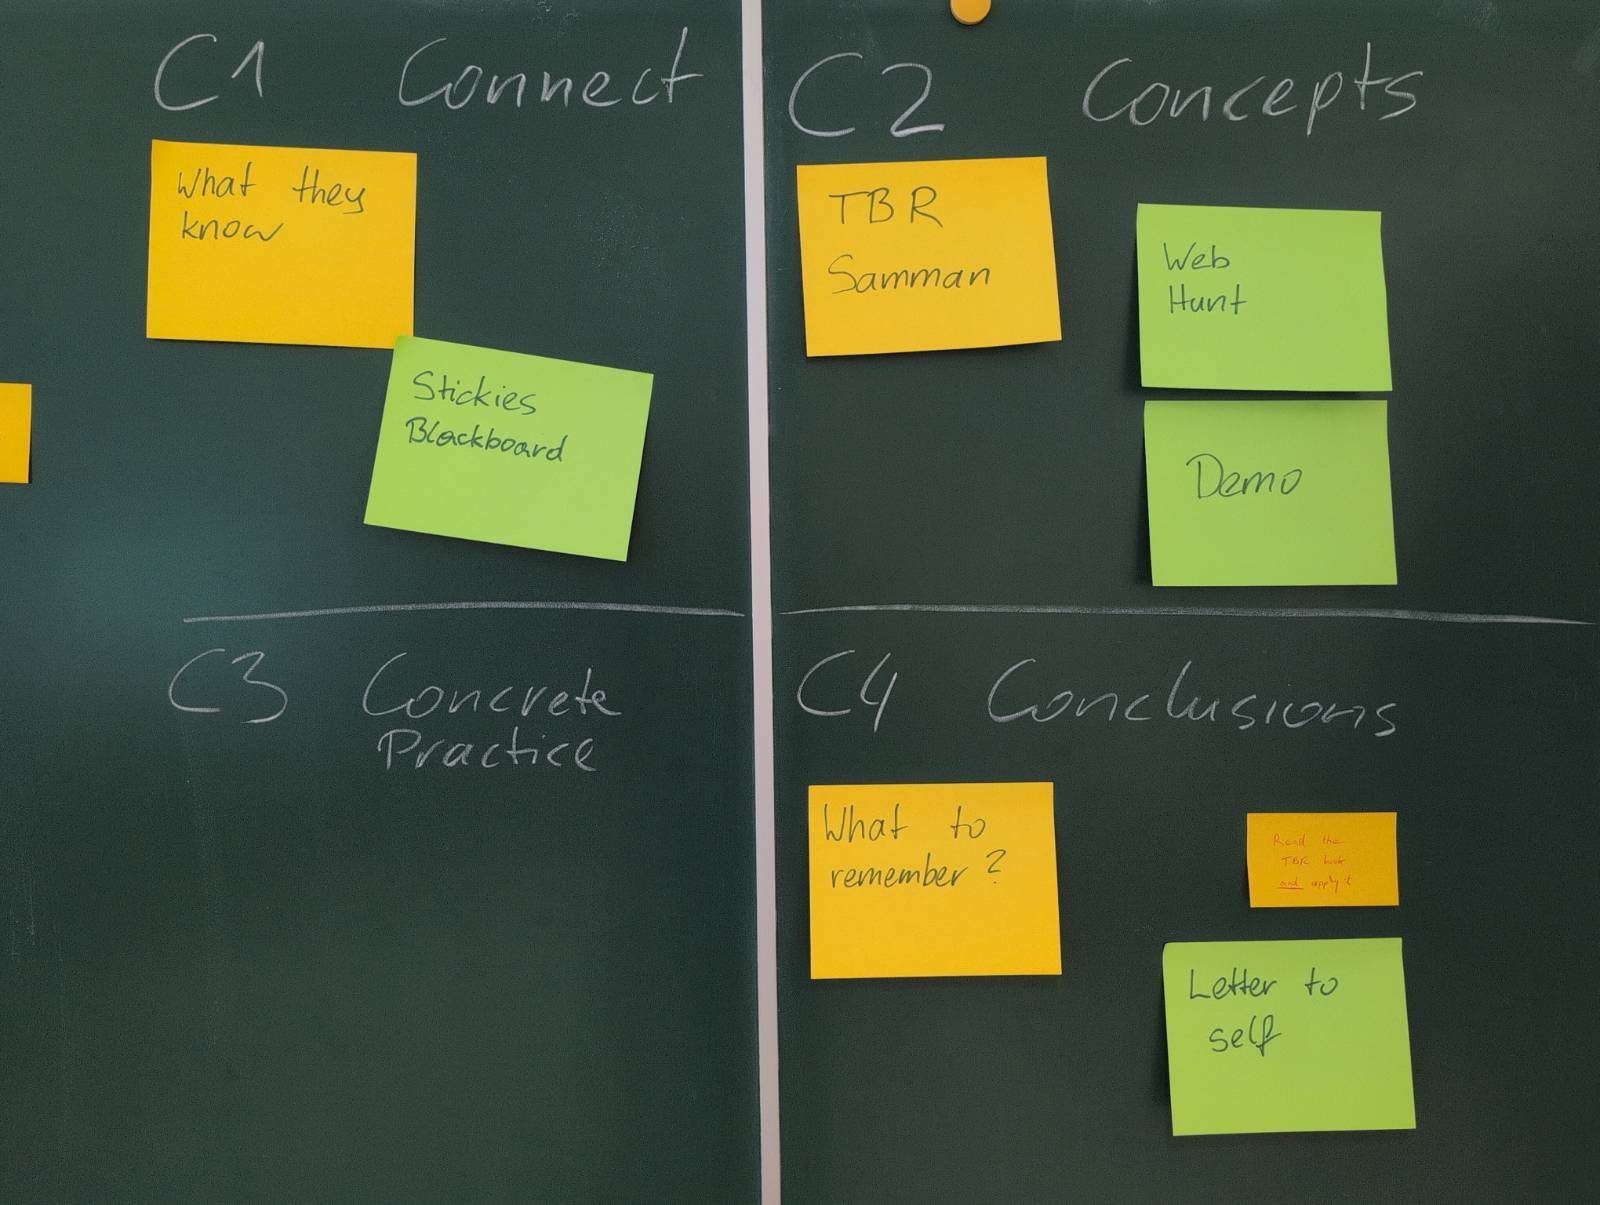 C1 Connect
What they
know
Stickies
Blackboard
C2 Concepts
TBR
Samman
Web
Hunt
Demo
C3 Concrete
Practice
C4 Conclusions
What to
remember?
Read the
TBR book
and apply it
Letter to
self